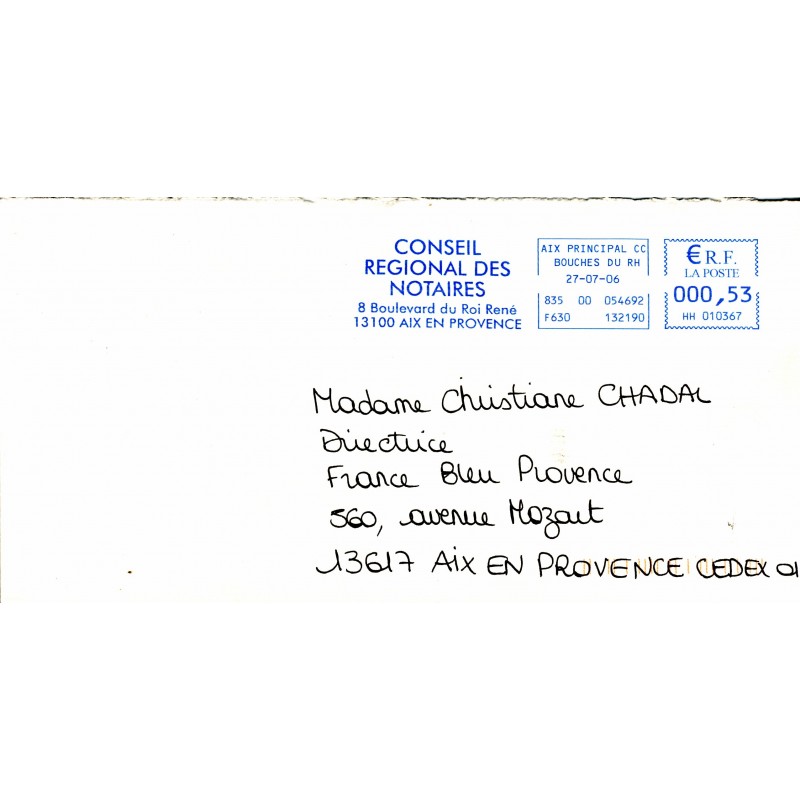 CONSEIL
REGIONAL DES
NOTAIRES
8 Boulevard du Roi René
13100 AIX EN PROVENCE
AIX PRINCIPAL CC
BOUCHES DU RH
27-07-06
835 00 054692
F630 132190
€ R.F.
LA POSTE
000,53
HH 010367
Madame Christiane CHADAL
Directrice
France Bleu Provence
560, avenue Mozart
13617 AIX EN PROVENCE CEDEX 01